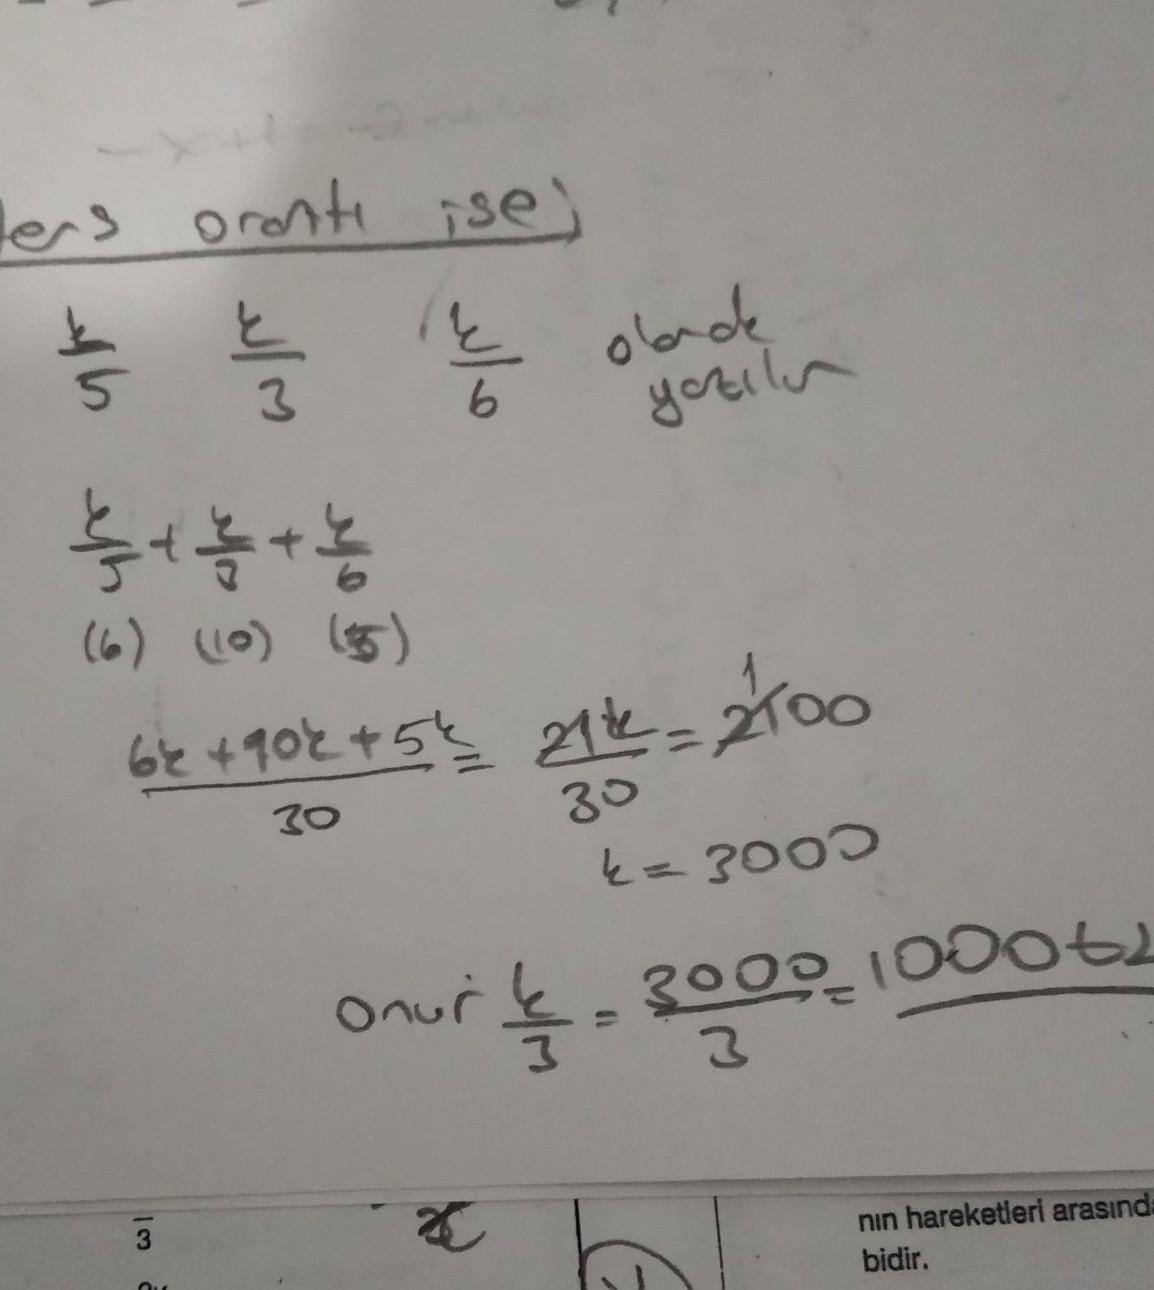 ters orantı ise;
k/5 k/3 k/6 olarak
yazılır
k/5 + k/3 + k/6
(6) (10) (5)
6k+10k+5k/30 = 21k/30 = 2100
1
k = 3000
Onur k/3 = 3000/3 = 1000 TL
3
x
nın hareketleri arasında
bidir.